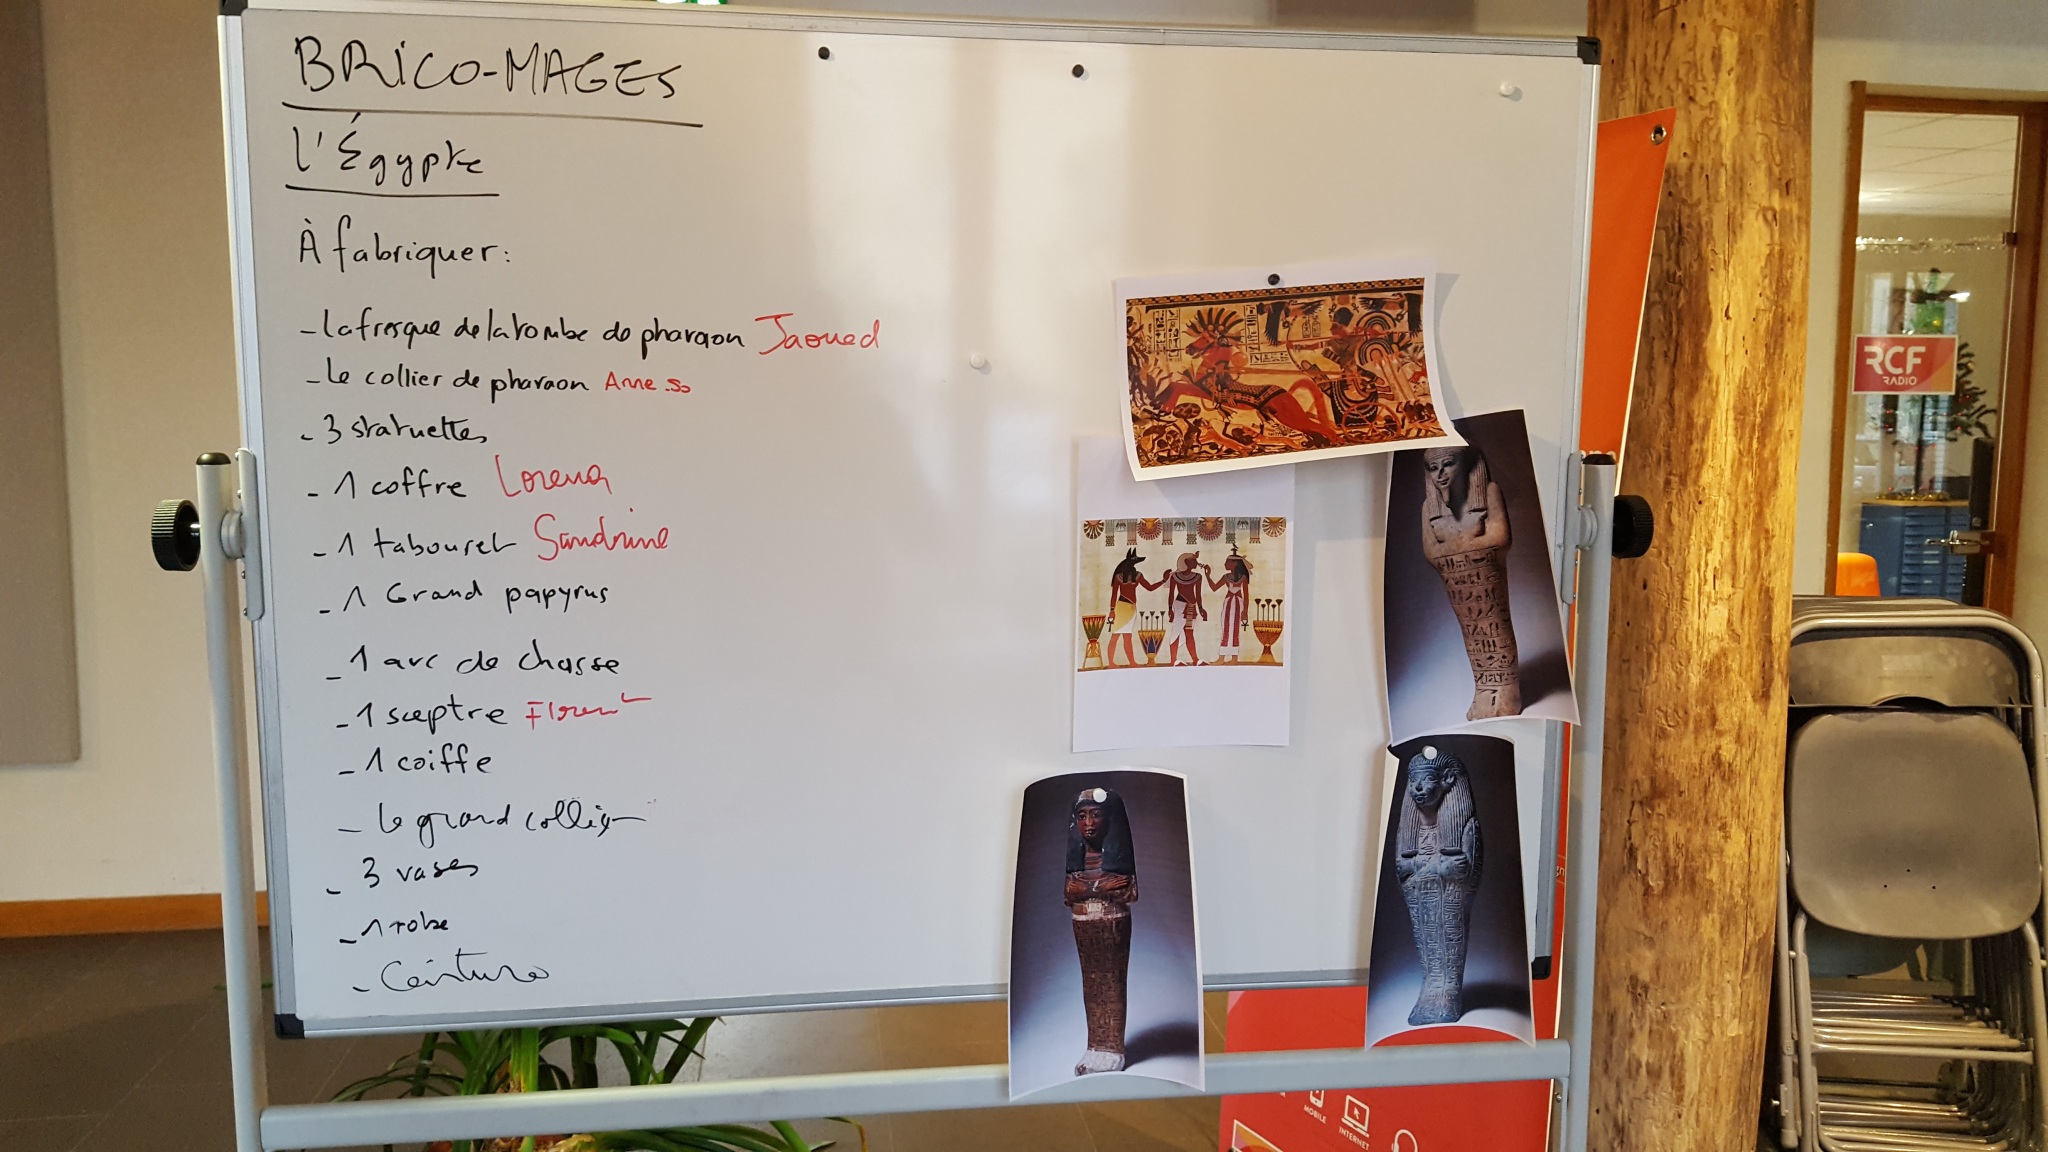 BRICO-MAGES
l'Égypte
À fabriquer:
- la fresque de la tombe de pharaon Jaoued
- le collier de pharaon Anne.So
- 3 statuettes
- 1 coffre Lorena
- 1 tabouret Sandrine
- 1 Grand papyrus
- 1 arc de chasse
- 1 sceptre Florent
- 1 coiffe
- le grand collier
- 3 vases
- 1 robe
- Ceinture
RCF
RADIO
MOBILE
INTERNET